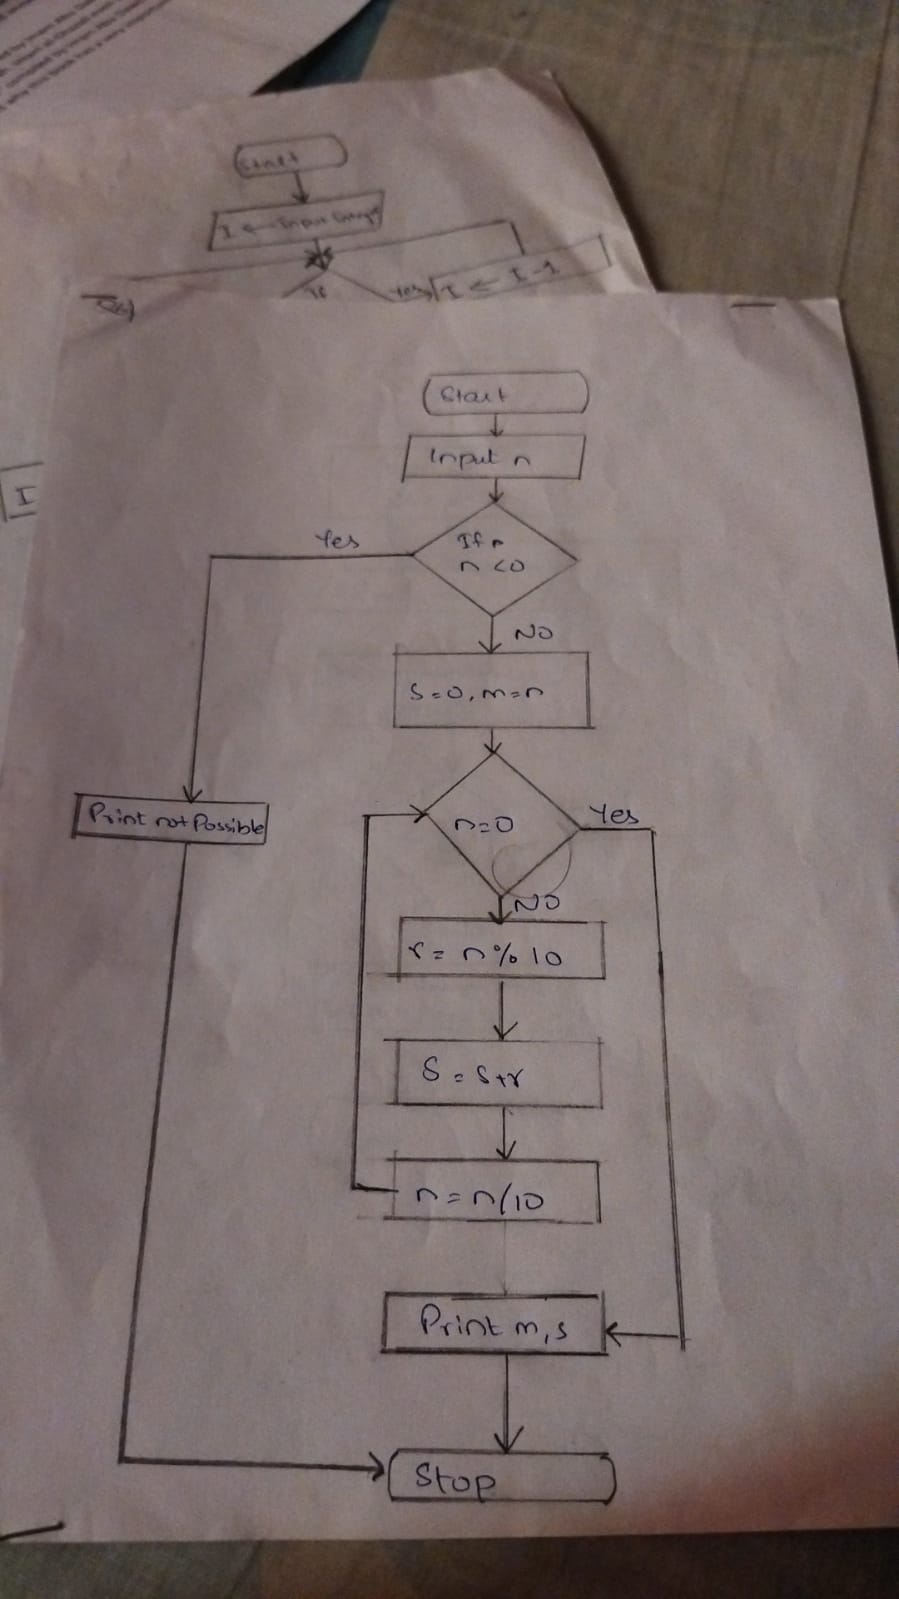 Start
I ← Input
Yes
I ← I-1
I
Start
Input n
If n
n<0
Yes
NO
S=0, m=n
Print not Possible
n=0
Yes
NO
r = n % 10
S = S+r
n = n/10
Print m,s
Stop